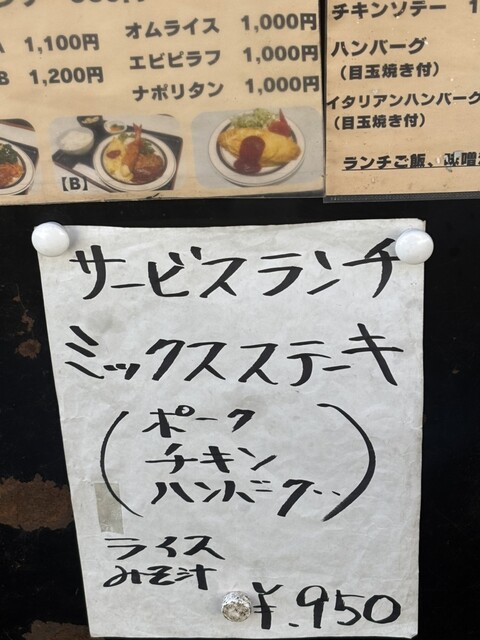 オムライス 1,000円
1,100円 エビピラフ 1,000円
B 1,200円 ナポリタン 1,000円
【B】
チキンソテー
ハンバーグ
(目玉焼き付)
イタリアンハンバーグ
(目玉焼き付)
ランチご飯、味噌
サービスランチ
ミックスステーキ
(ポーク
チキン
ハンバーグ)
ライス
みそ汁
¥.950